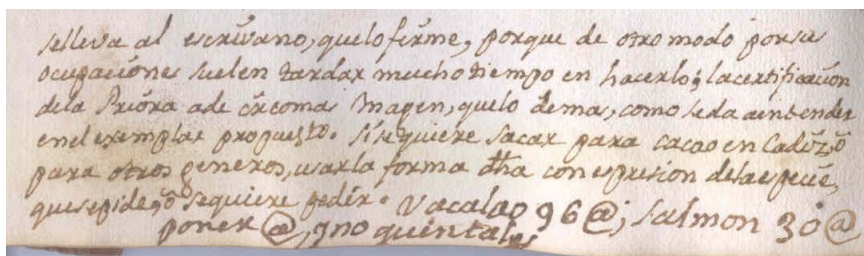 selleva al escrivano, quelo firme, porque de otro modo porsus
ocupaciones suelen tardar mucho tiempo en hacerlo; la certificacion
dela Priora a de ir con mas margen, quelo demas, como seda aentender
en el exemplar propuesto. Si se quiere sacar para cacao en Cadiz, ò
para otros generos, usar la forma dha con espresion dela especie,
que se pide, ò se quiere pedir. Vacalao 96 @; salmon 30 @
poner @, y no quintales